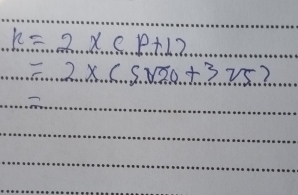 k = 2 × ( P + l )
= 2 × ( 5√20 + 3√5 )
=